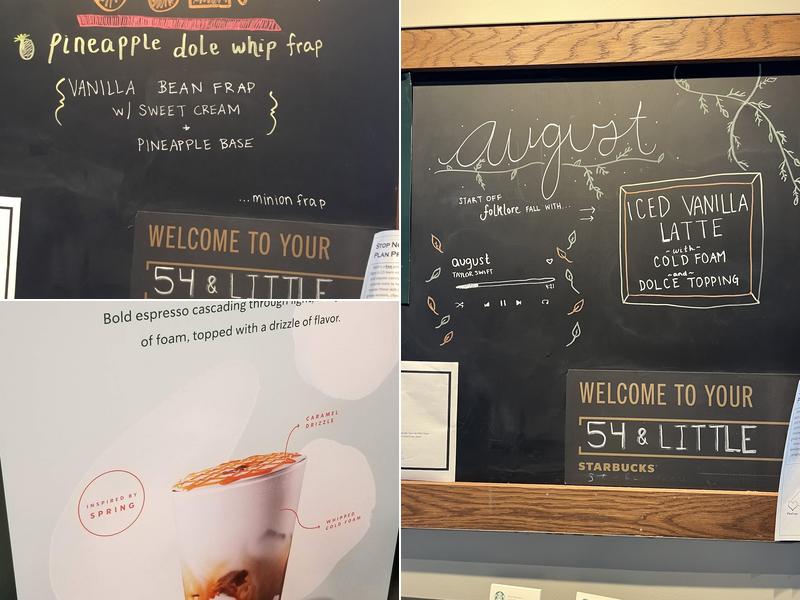 pineapple dole whip frap
VANILLA BEAN FRAP
w/ SWEET CREAM
+
PINEAPPLE BASE
...minion frap
WELCOME TO YOUR
54 & LITTLE
STOP NO
PLAN PR
Bold espresso cascading through
of foam, topped with a drizzle of flavor.
CARAMEL
DRIZZLE
INSPIRED BY
SPRING
WHIPPED
COLD FOAM
august
START OFF
folklore FALL WITH...
august
TAYLOR SWIFT
4:21
ICED VANILLA
LATTE
-with-
COLD FOAM
-and-
DOLCE TOPPING
WELCOME TO YOUR
54 & LITTLE
STARBUCKS